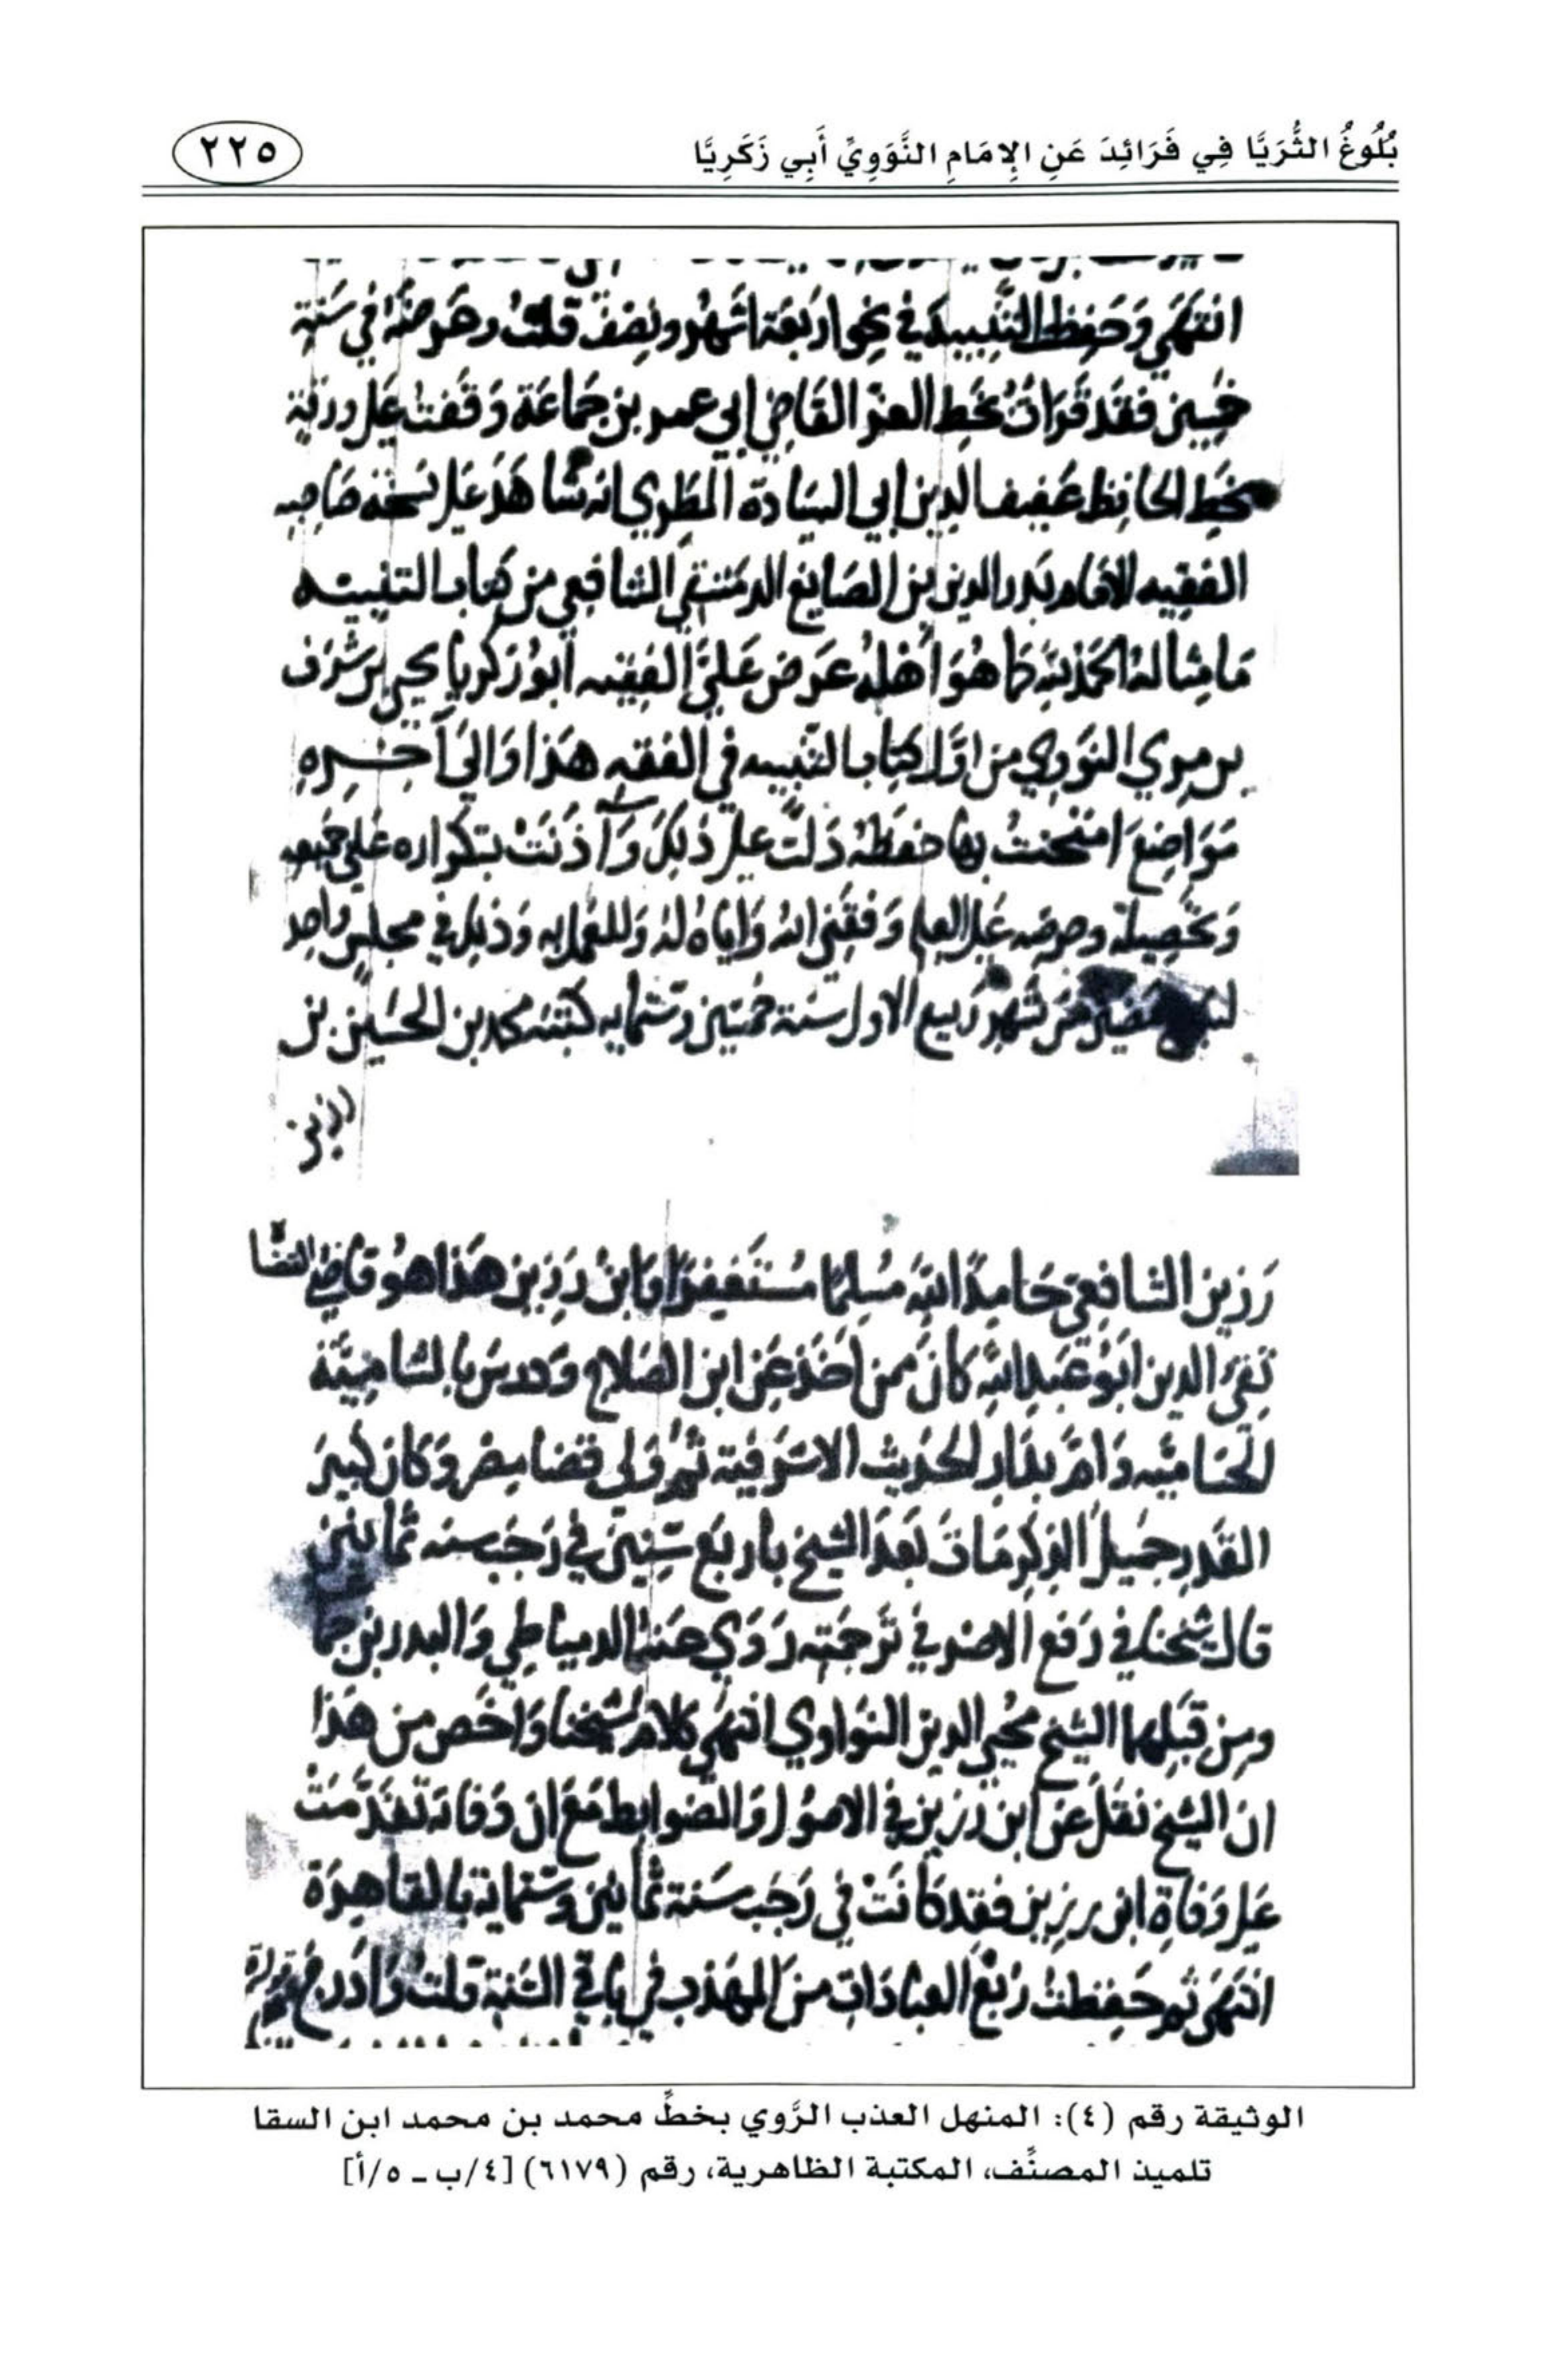 بُلُوغُ الثُّرَيَّا فِي فَرَائِدَ عَنِ الإِمَامِ النَّوَوِيِّ أَبِي زَكَرِيَّا
٢٢٥
انتهى وَحَفِظ التنبيه في نحو اربعة اشهر ونصف قلت وعرضه في سَنة
خمسين فقد قرأت بخط العز القاضي ابي عمر بن جماعة وَقفت على ورقة
بخط الحافظ عفيف الدين ابي السيادة المطري انه شاهد على نسخة صاحبه
الفقيه الامام بدر الدين بن الصايغ الدمشقي الشافعي من كتاب التنبيه
مَا مثاله الحمد لله كما هُوَ أهله عَرض عَليَّ الفقيه أبو زكريا يحيى بن شرف
بن مري النووي من اوَّل كتاب التنبيه في الفقه هذا وَالى آخِره
مَوَاضِعَ امتحنتُ بها حفظه دَلت على ذلك وَأذنت بتكراره على جميعه
وَتحصيله وحرصه على العلم وَفقني الله وَاياه له وَللعمل به وَذلك في مجلس وَاحد
مضين من شهر ربيع الاول سنة خمسين وستمايه كتبه محمد بن الحسَين بن
رزين
رَزين الشافعي حَامدًا لله مسلما مُستَغفِرا وَابن رَزين هذا هو قاضي القضا
تقي الدين ابو عَبد الله كان ممن اخذ عَن ابن الصلاح وَدرس بالشامِيَّة
الحسَاميه وَامَّ بدار الحديث الاشرفية ثم وَلي قضا مصر وَكان كبير
القدر جميل الذكر مَات بَعد الشيخ باربع سِنين في رَجب سنه ثمانين
قال شيخنا في رَفع الاصر في ترجمته رَوَى عنه الدمياطي وَالبدر بن جما
ومن قبلها الشيخ محيي الدين النواوي انتهى كلام شيخنا وَاخص من هذا
ان الشيخ نقل عَن ابن رزين في الاصول وَالضوابط مَع ان وَفاته تقدَّمت
على وَفاة ابن رزين فقد كانت في رَجب سَنة ثمانين وستماية بالقاهِرَة
انتهى ثم حَفظت رُبع العبادَات من المهذب في باقي السَّنة قلت وَادرج
الوثيقة رقم (٤): المنهل العذب الرَّوي بخطِّ محمد بن محمد ابن السقا
تلميذ المصنِّف، المكتبة الظاهرية، رقم (٦١٧٩) [٤/ب ـ ٥/أ]